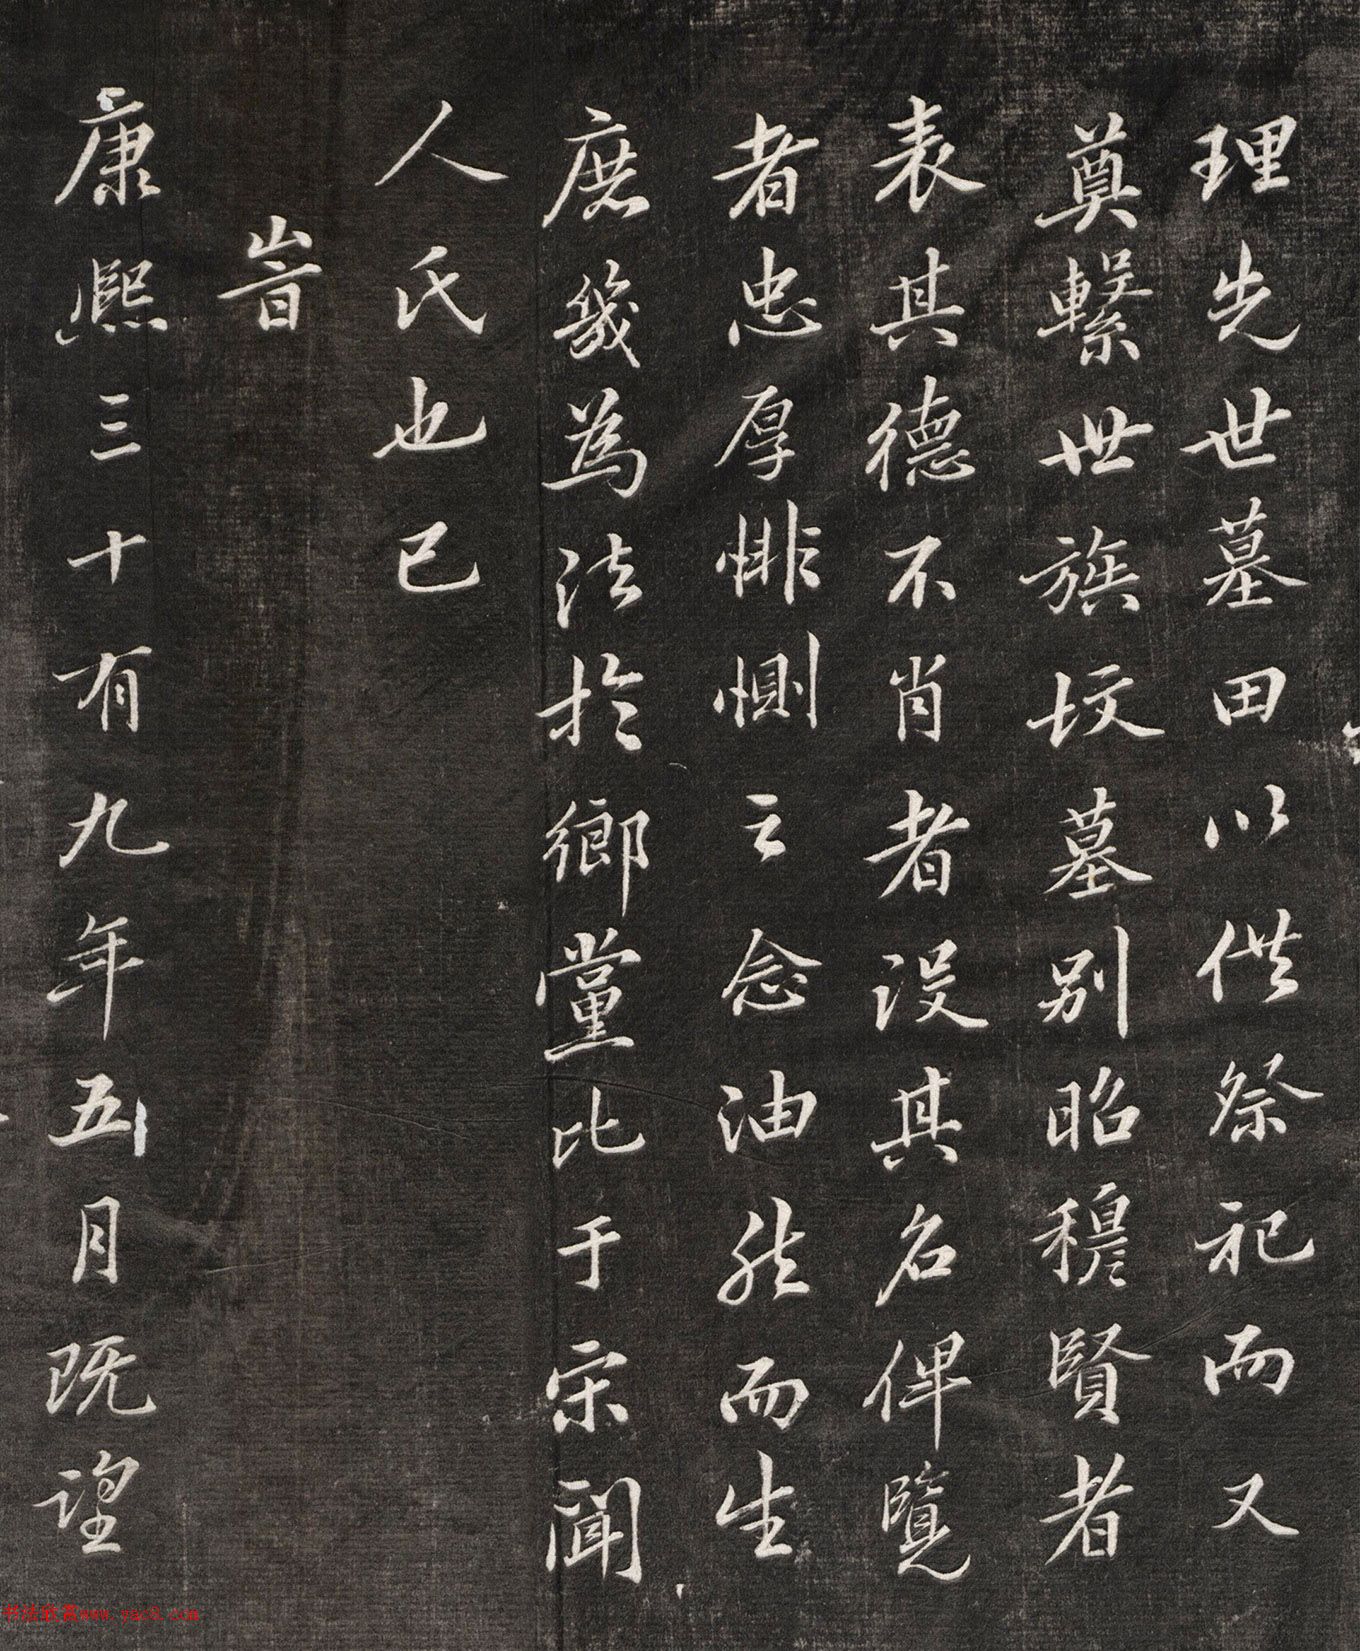 理先世墓田以供祭祀而又
奠繫世族坟墓别昭穆賢者
表其德不肖者没其名俾覽
者忠厚悱惻之念油然而生
庶幾為法於鄉黨比于宋聞
人氏也已
旹
康熙三十有九年五月既望
书法欣赏www.yac8.com